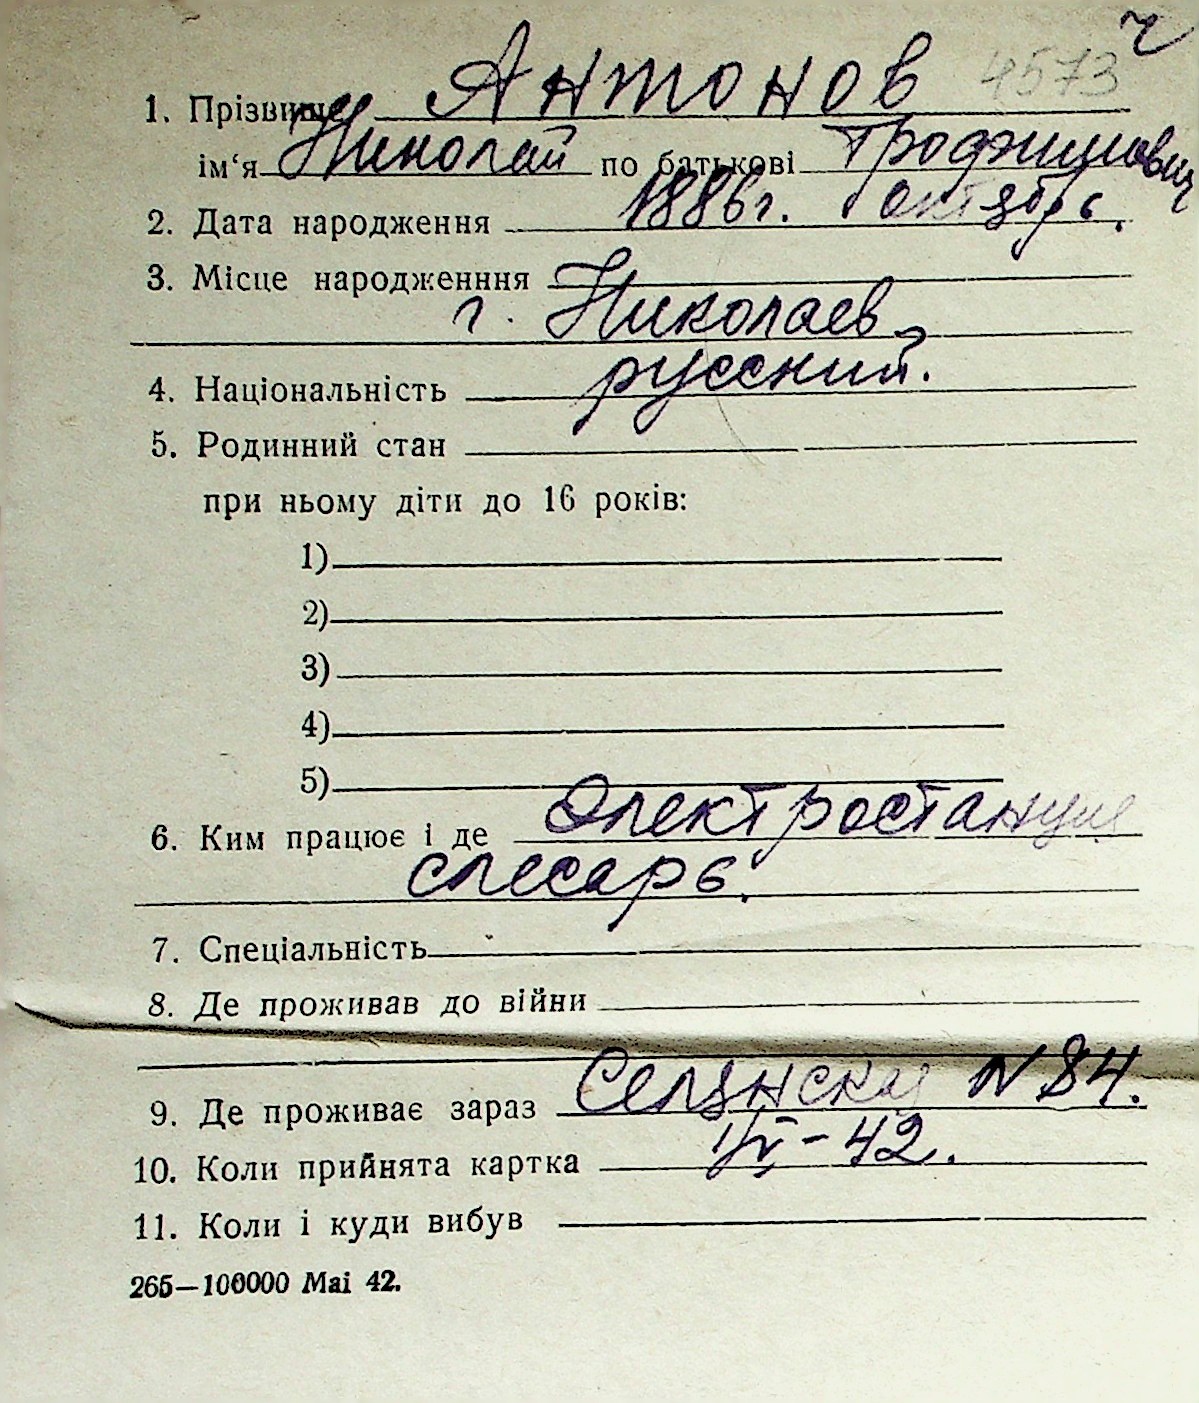 ч
4573
1. Прізвище Антонов
ім‘я Николай по батькові Трофимович
2. Дата народження 1886г. октябрь.
3. Місце народженння
г. Николаев
4. Національність русский.
5. Родинний стан
при ньому діти до 16 років:
1)
2)
3)
4)
5)
6. Ким працює і де Электростанция
слесарь.
7. Спеціальність
8. Де проживав до війни
9. Де проживає зараз N 84.
10. Коли прийнята картка 42.
11. Коли і куди вибув
265—100000 Mai 42.